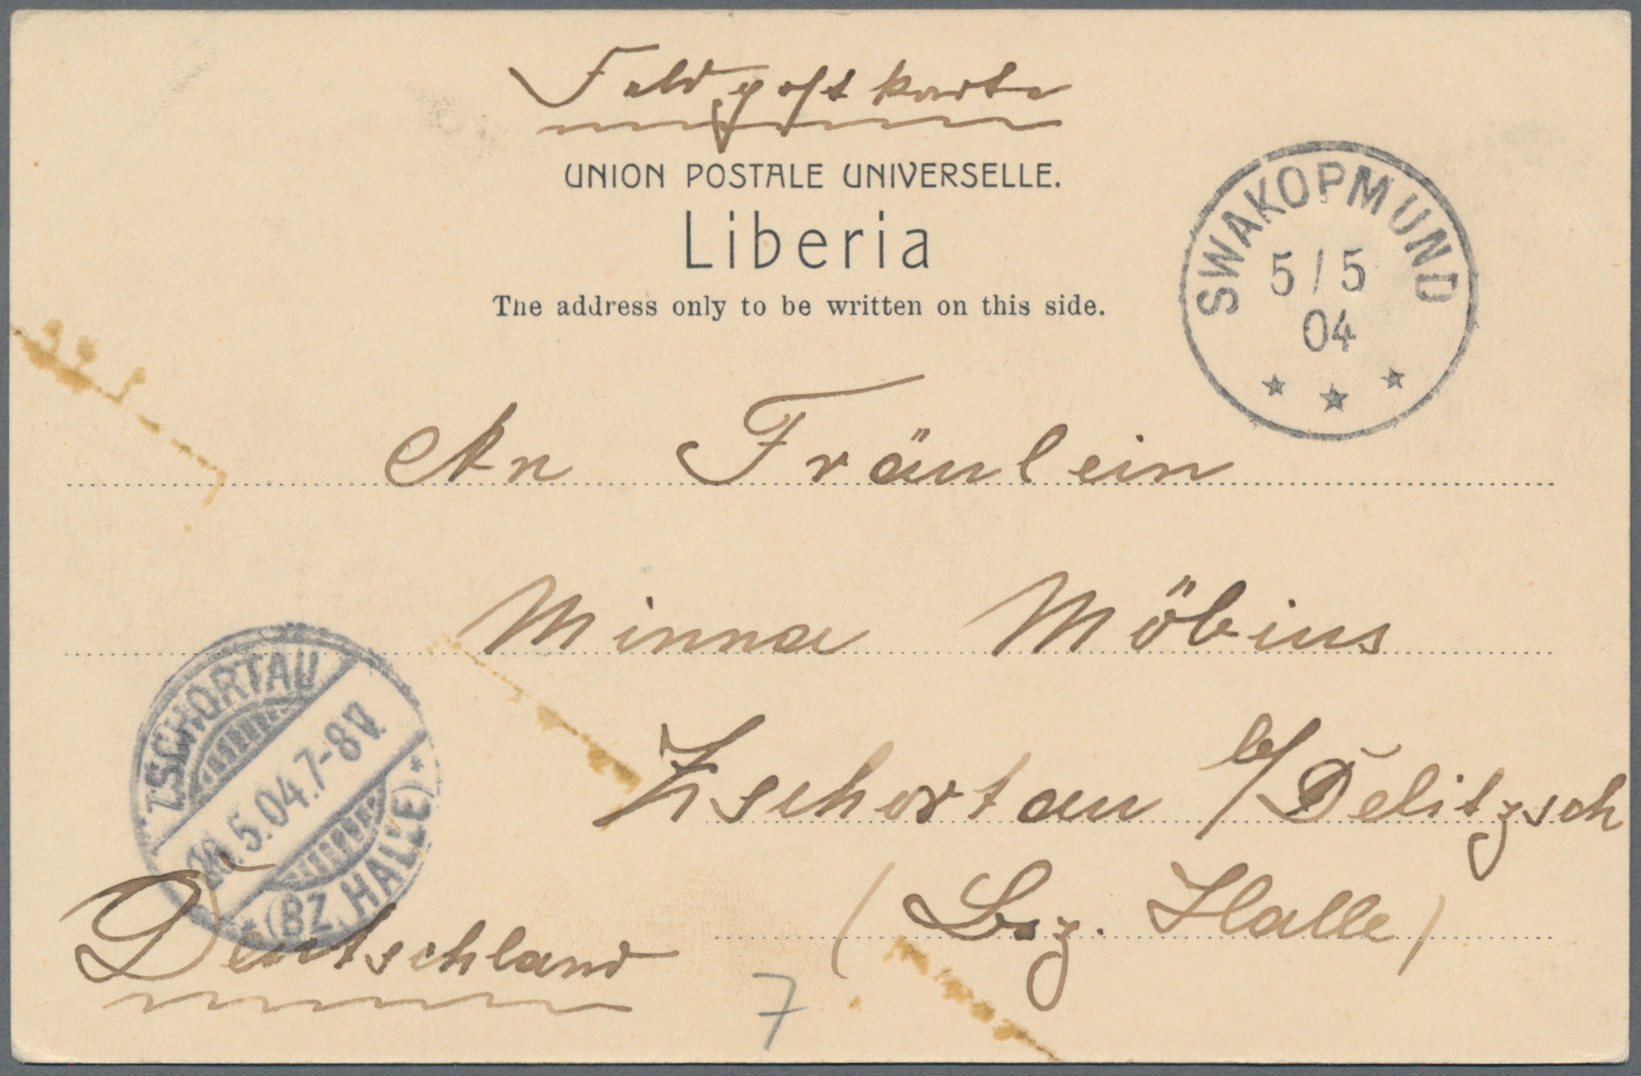 Feldpostkarte
UNION POSTALE UNIVERSELLE.
Liberia
The address only to be written on this side.
SWAKOPMUND
5/5
04
An Fräulein
Minna Möbius
Zschortau b/Delitzsch
(Bez. Halle)
Deutschland
ZSCHORTAU
5.04.7-8V.
(BZ. HALLE)
7